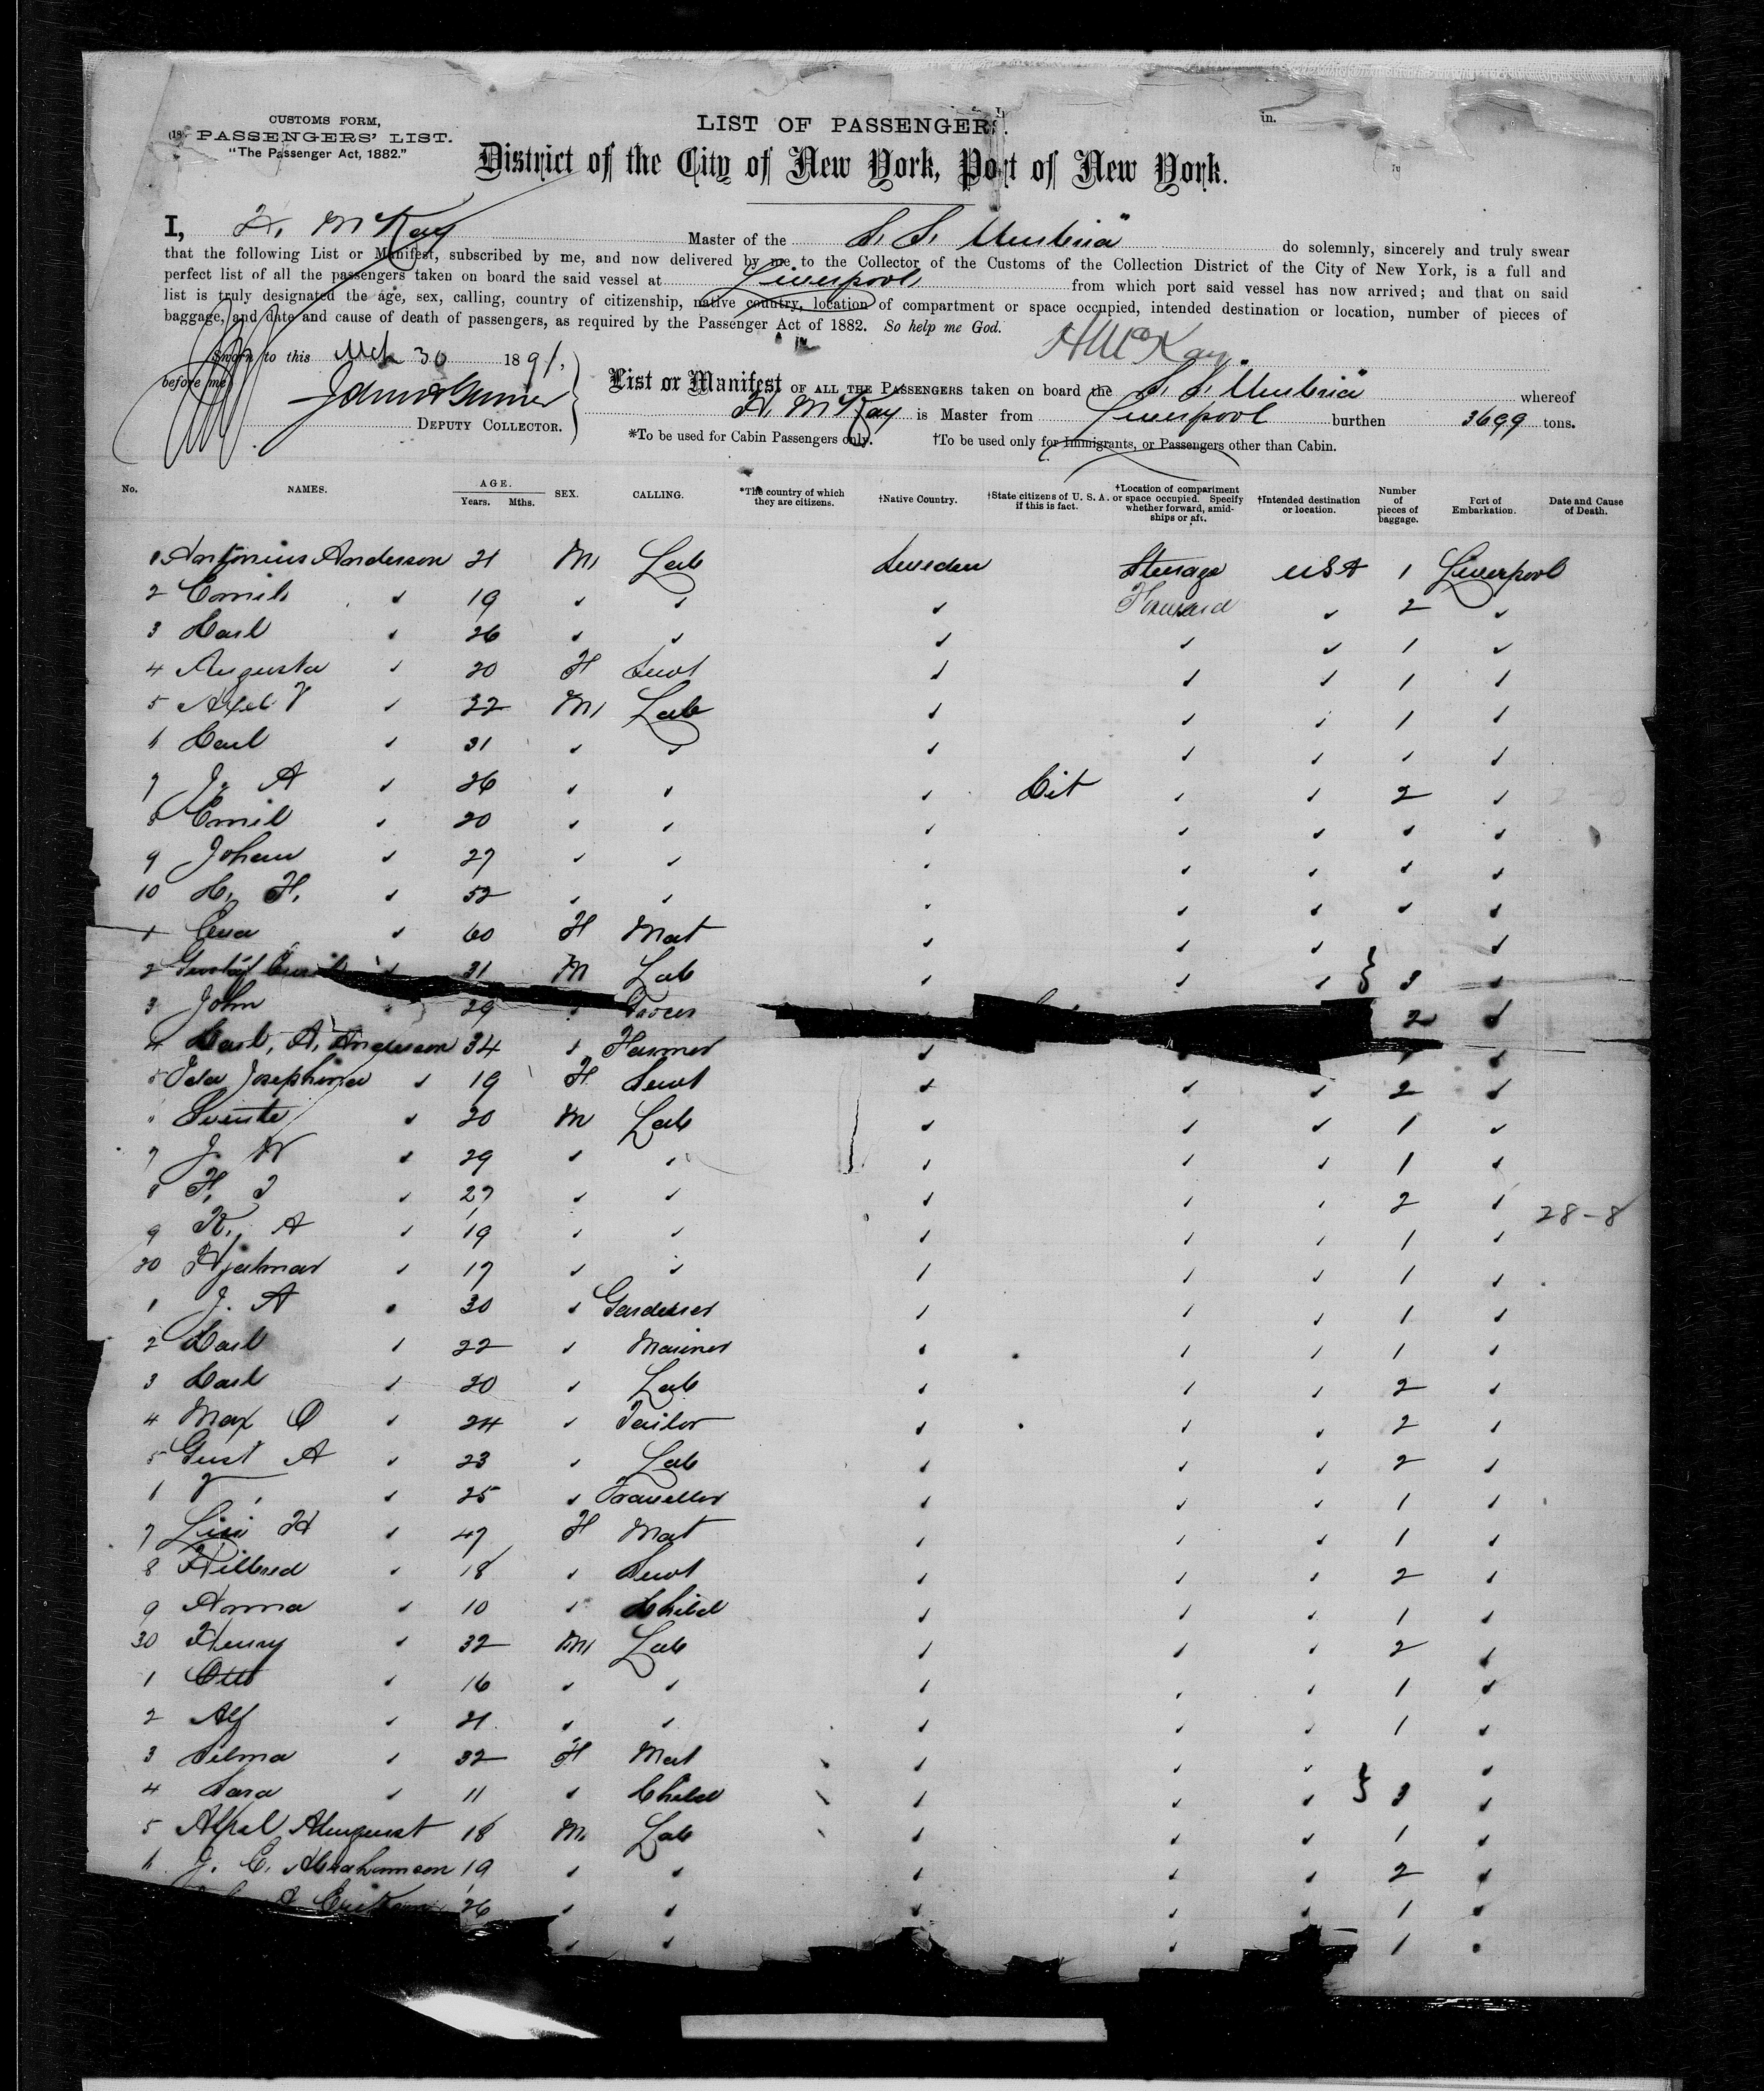 CUSTOMS FORM,
PASSENGERS' LIST.
"The Passenger Act, 1882."
LIST OF PASSENGERS.
District of the City of New York, Port of New York.
I, H. McKay Master of the S. S. Umbria" do solemnly, sincerely and truly swear
that the following List or Manifest, subscribed by me, and now delivered by me to the Collector of the Customs of the Collection District of the City of New York, is a full and
perfect list of all the passengers taken on board the said vessel at Liverpool from which port said vessel has now arrived; and that on said
list is truly designated the age, sex, calling, country of citizenship, native country, location of compartment or space occupied, intended destination or location, number of pieces of
baggage, and date and cause of death of passengers, as required by the Passenger Act of 1882. So help me God.
Sworn to this Mch 30 1891. H McKay.
before me
DEPUTY COLLECTOR.
List or Manifest OF ALL THE PASSENGERS taken on board the S. S. Umbria" whereof
H. McKay is Master from Liverpool burthen 3699 tons.
*To be used for Cabin Passengers only. †To be used only for Immigrants, or Passengers other than Cabin.
No. NAMES. AGE. Years. Mths. SEX. CALLING. *The country of which they are citizens. †Native Country. †State citizens of U. S. A. if this is fact. †Location of compartment or space occupied. Specify whether forward, amidships or aft. †Intended destination or location. Number of pieces of baggage. Port of Embarkation. Date and Cause of Death.
1 Antonius Anderson 21 M Lab Sweden Steerage USA 1 Liverpool
2 Emil " 19 " " " Forward " 2 "
3 Carl " 26 " " " " " 1 "
4 Augusta " 20 F Servt " " " 1 "
5 Axel V " 22 M Lab " " " 1 "
6 Carl " 31 " " " " " " "
7 J. A " 26 " " " Cit " " 2 "
8 Emil " 20 " " " " " " "
9 Johan " 27 " " " " " " "
10 C. F. " 52 " " " " " " "
1 " 60 F Mat " " " "
2 Gustaf " 31 M Lab " " " } 3 "
3 John " 29 " Grocer 2 "
4 Carl, A. Anderson 34 " Farmer " "
5 Ida Josephina " 19 F Servt " " " 2 "
" 20 M Lab " " " 1 "
7 J. W " 29 " " " " " 1 "
8 F. J " 27 " " " " " 2 "
28-8
9 K. A " 19 " " " " " 1 "
20 Hjalmar " 17 " " " " " 1 "
1 J. A " 30 " Gardener " " " 1 "
2 Carl " 22 " Mariner " " " 1 "
3 Carl " 20 " Lab " " " 2 "
4 Max O " 24 " Tailor " " " 2 "
5 Gust A " 23 " Lab " " " 2 "
" 25 " Traveller " " " 1 "
7 " 47 F Mat " " " 1 "
8 " 18 " Servt " " " 2 "
9 Anna " 10 " Child " " " 1 "
30 Henry " 32 M Lab " " " 2 "
1 Otto " 16 " " " " " 1 "
2 Alf " 21 " " " " " 1 "
3 Selma " 32 F Mat " " " "
4 Sara " 11 " Child " " " } 3 "
5 Almquist 18 M Lab " " " 1 "
6 J. E. Abrahamson 19 " " " " " 2 "
A 26 " " " " " 1 "
" " " 1 "